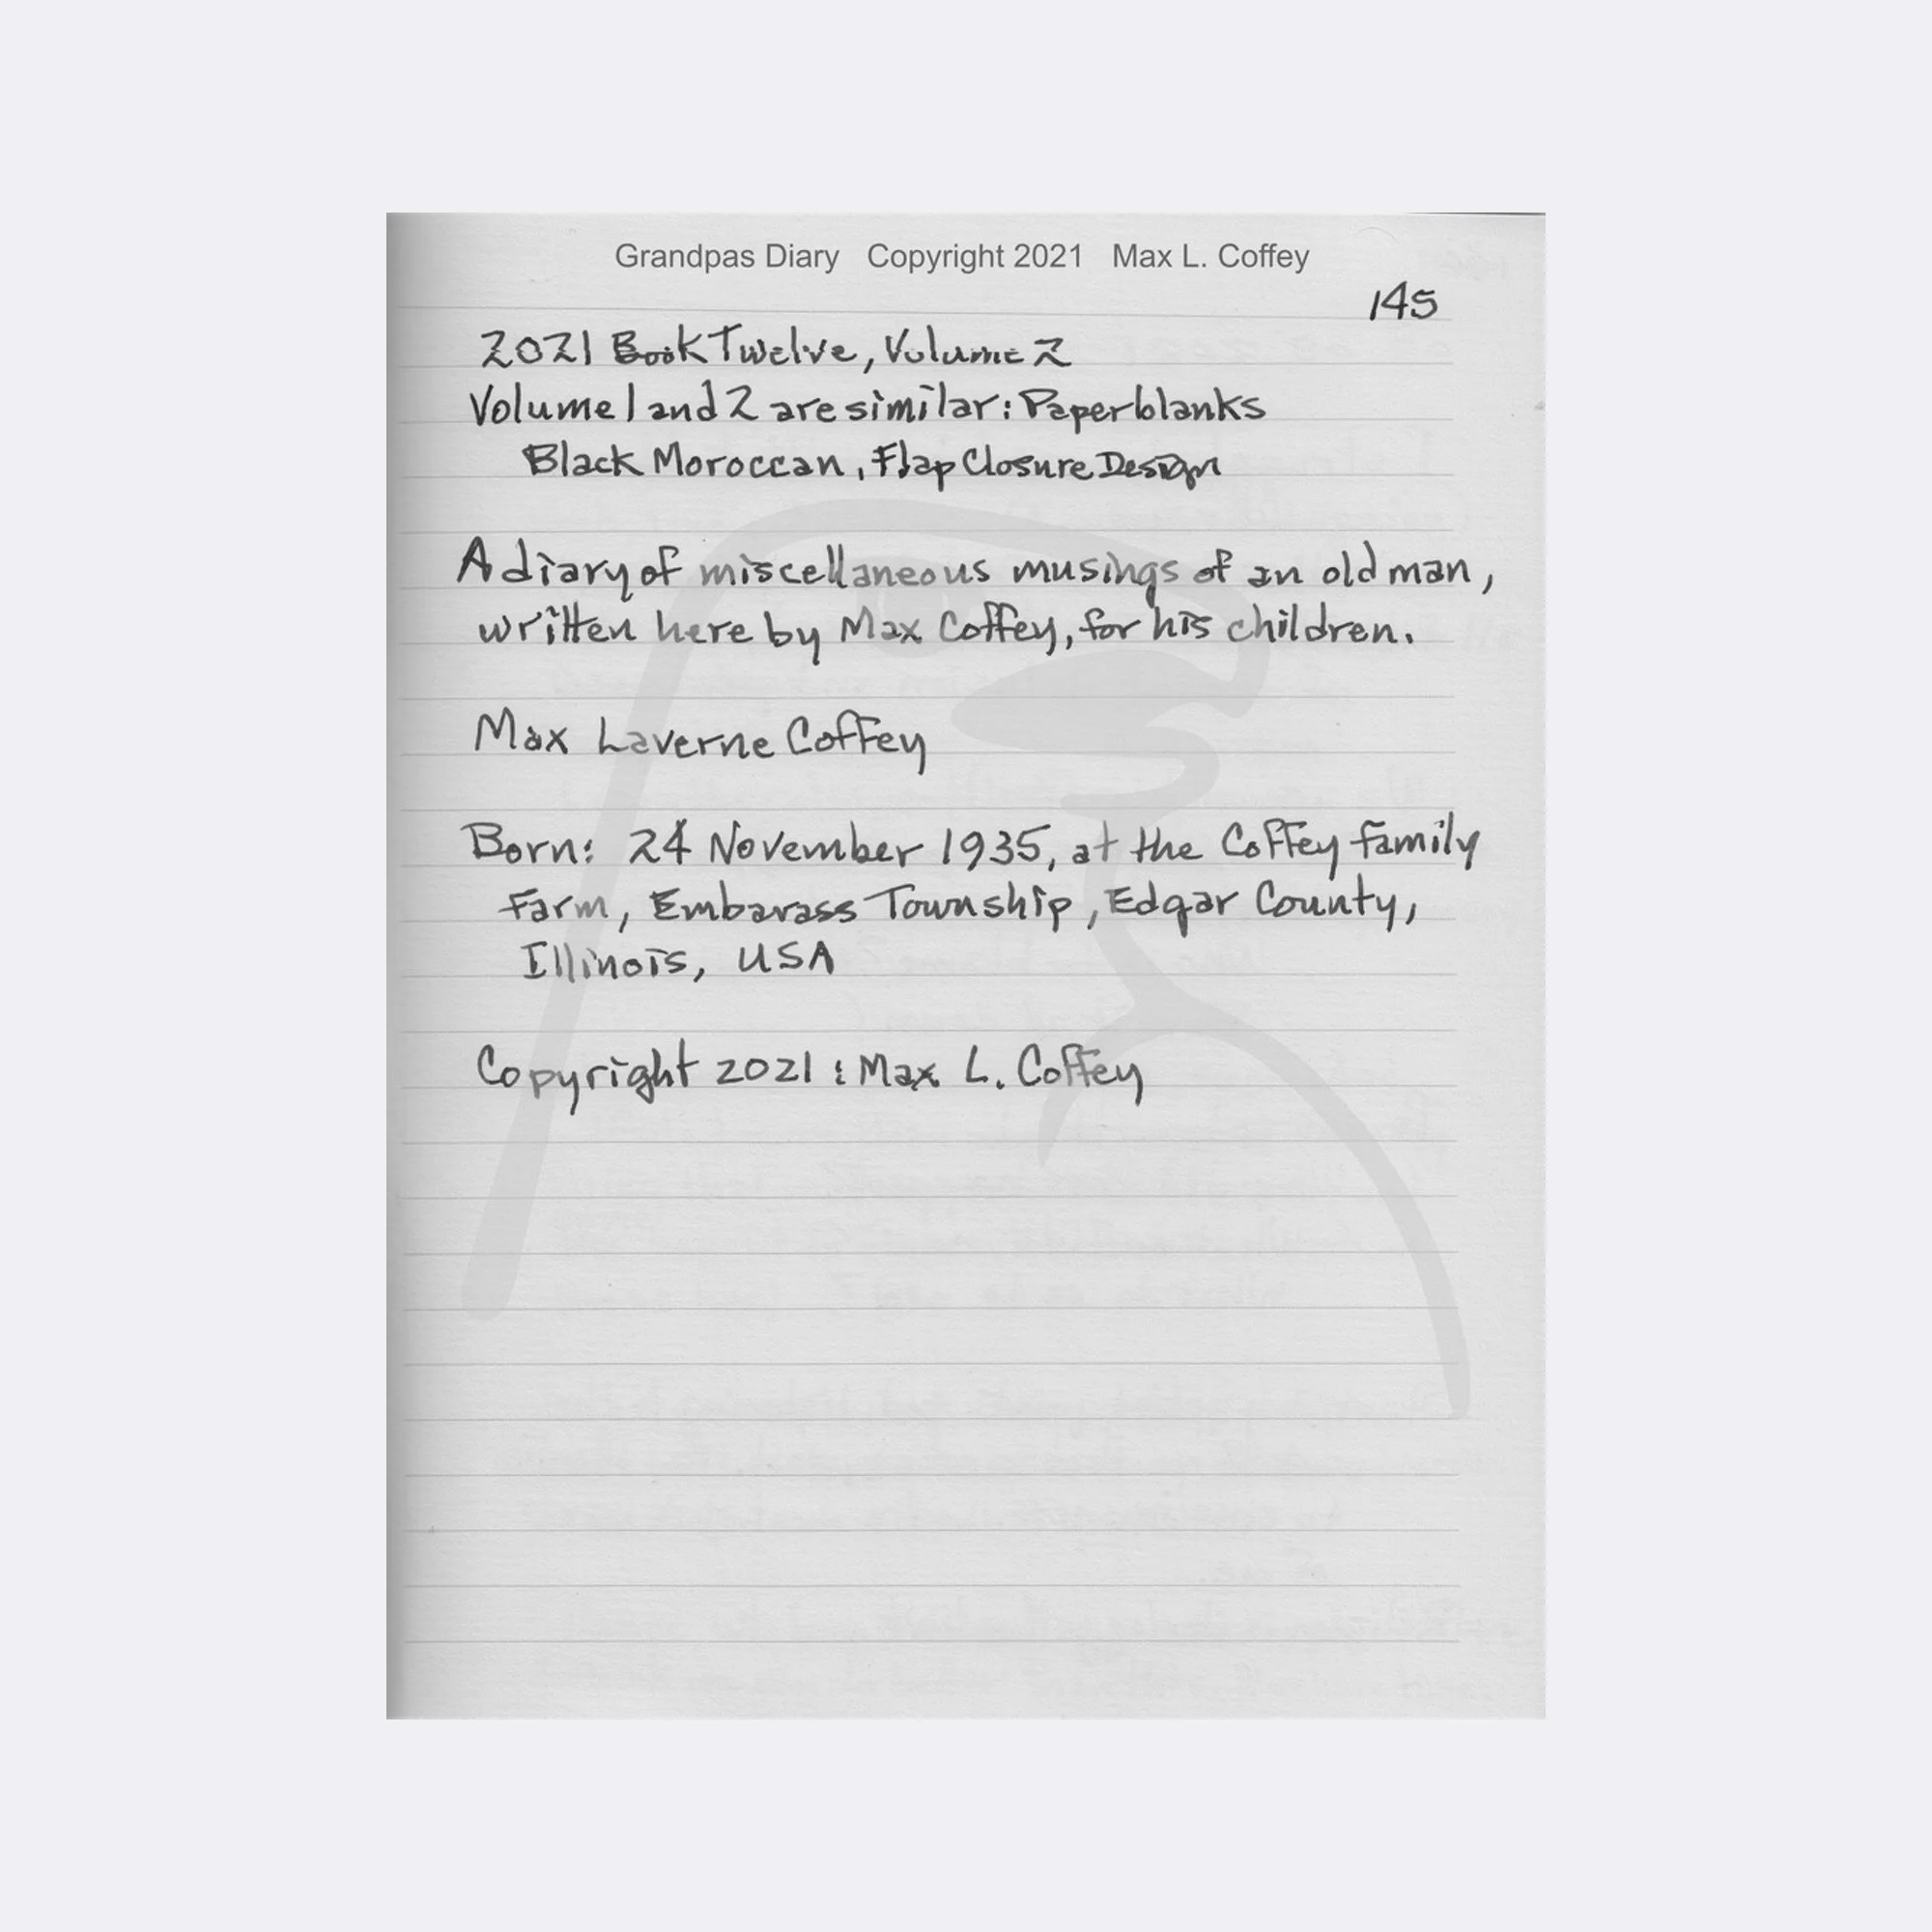 Grandpas Diary Copyright 2021 Max L. Coffey
145
2021 Book Twelve, Volume 2
Volume 1 and 2 are similar: Paperblanks
Black Moroccan, Flap Closure Design
A diary of miscellaneous musings of an old man,
written here by Max Coffey, for his children.
Max Laverne Coffey
Born: 24 November 1935, at the Coffey family
Farm, Embarass Township, Edgar County,
Illinois, USA
Copyright 2021: Max L. Coffey